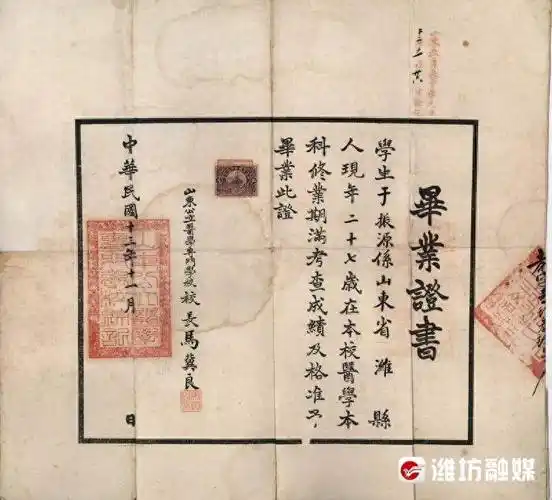 畢業證書
學生于振源係山東省濰縣
人現年二十七歲在本校醫學本
科修業期滿考查成績及格准予
畢業此證
山東公立醫學專門學校校長馬冀良
中華民國十三年十一月 日
濰坊融媒